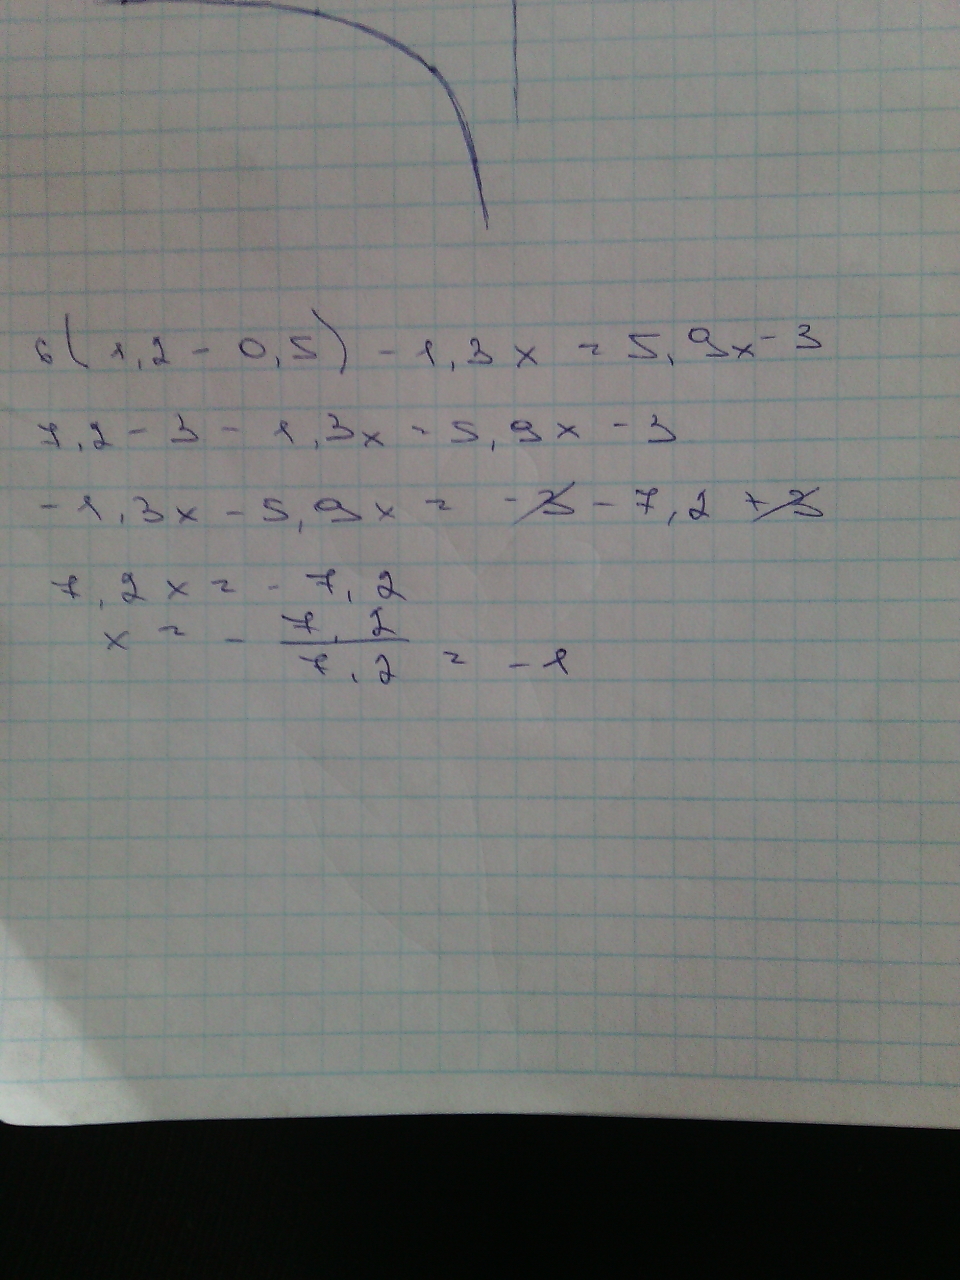 6(1,2 - 0,5) - 1,3x = 5,9x - 3
7,2 - 3 - 1,3x = 5,9x - 3
-1,3x - 5,9x = -3 - 7,2 + 3
7,2x = -7,2
x = - 7,2 / 7,2 = -1